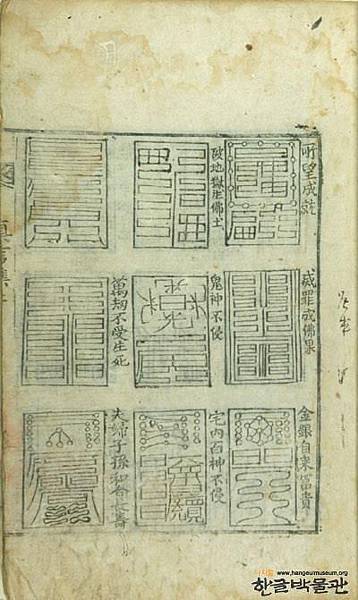 所望成就
破地獄生佛土
滅罪成佛果
鬼神不侵
萬劫不受生死
金銀自來富貴
宅內百神不侵
夫婦子孫和合長壽
디지털 www.hangeulmuseum.org
한글박물관